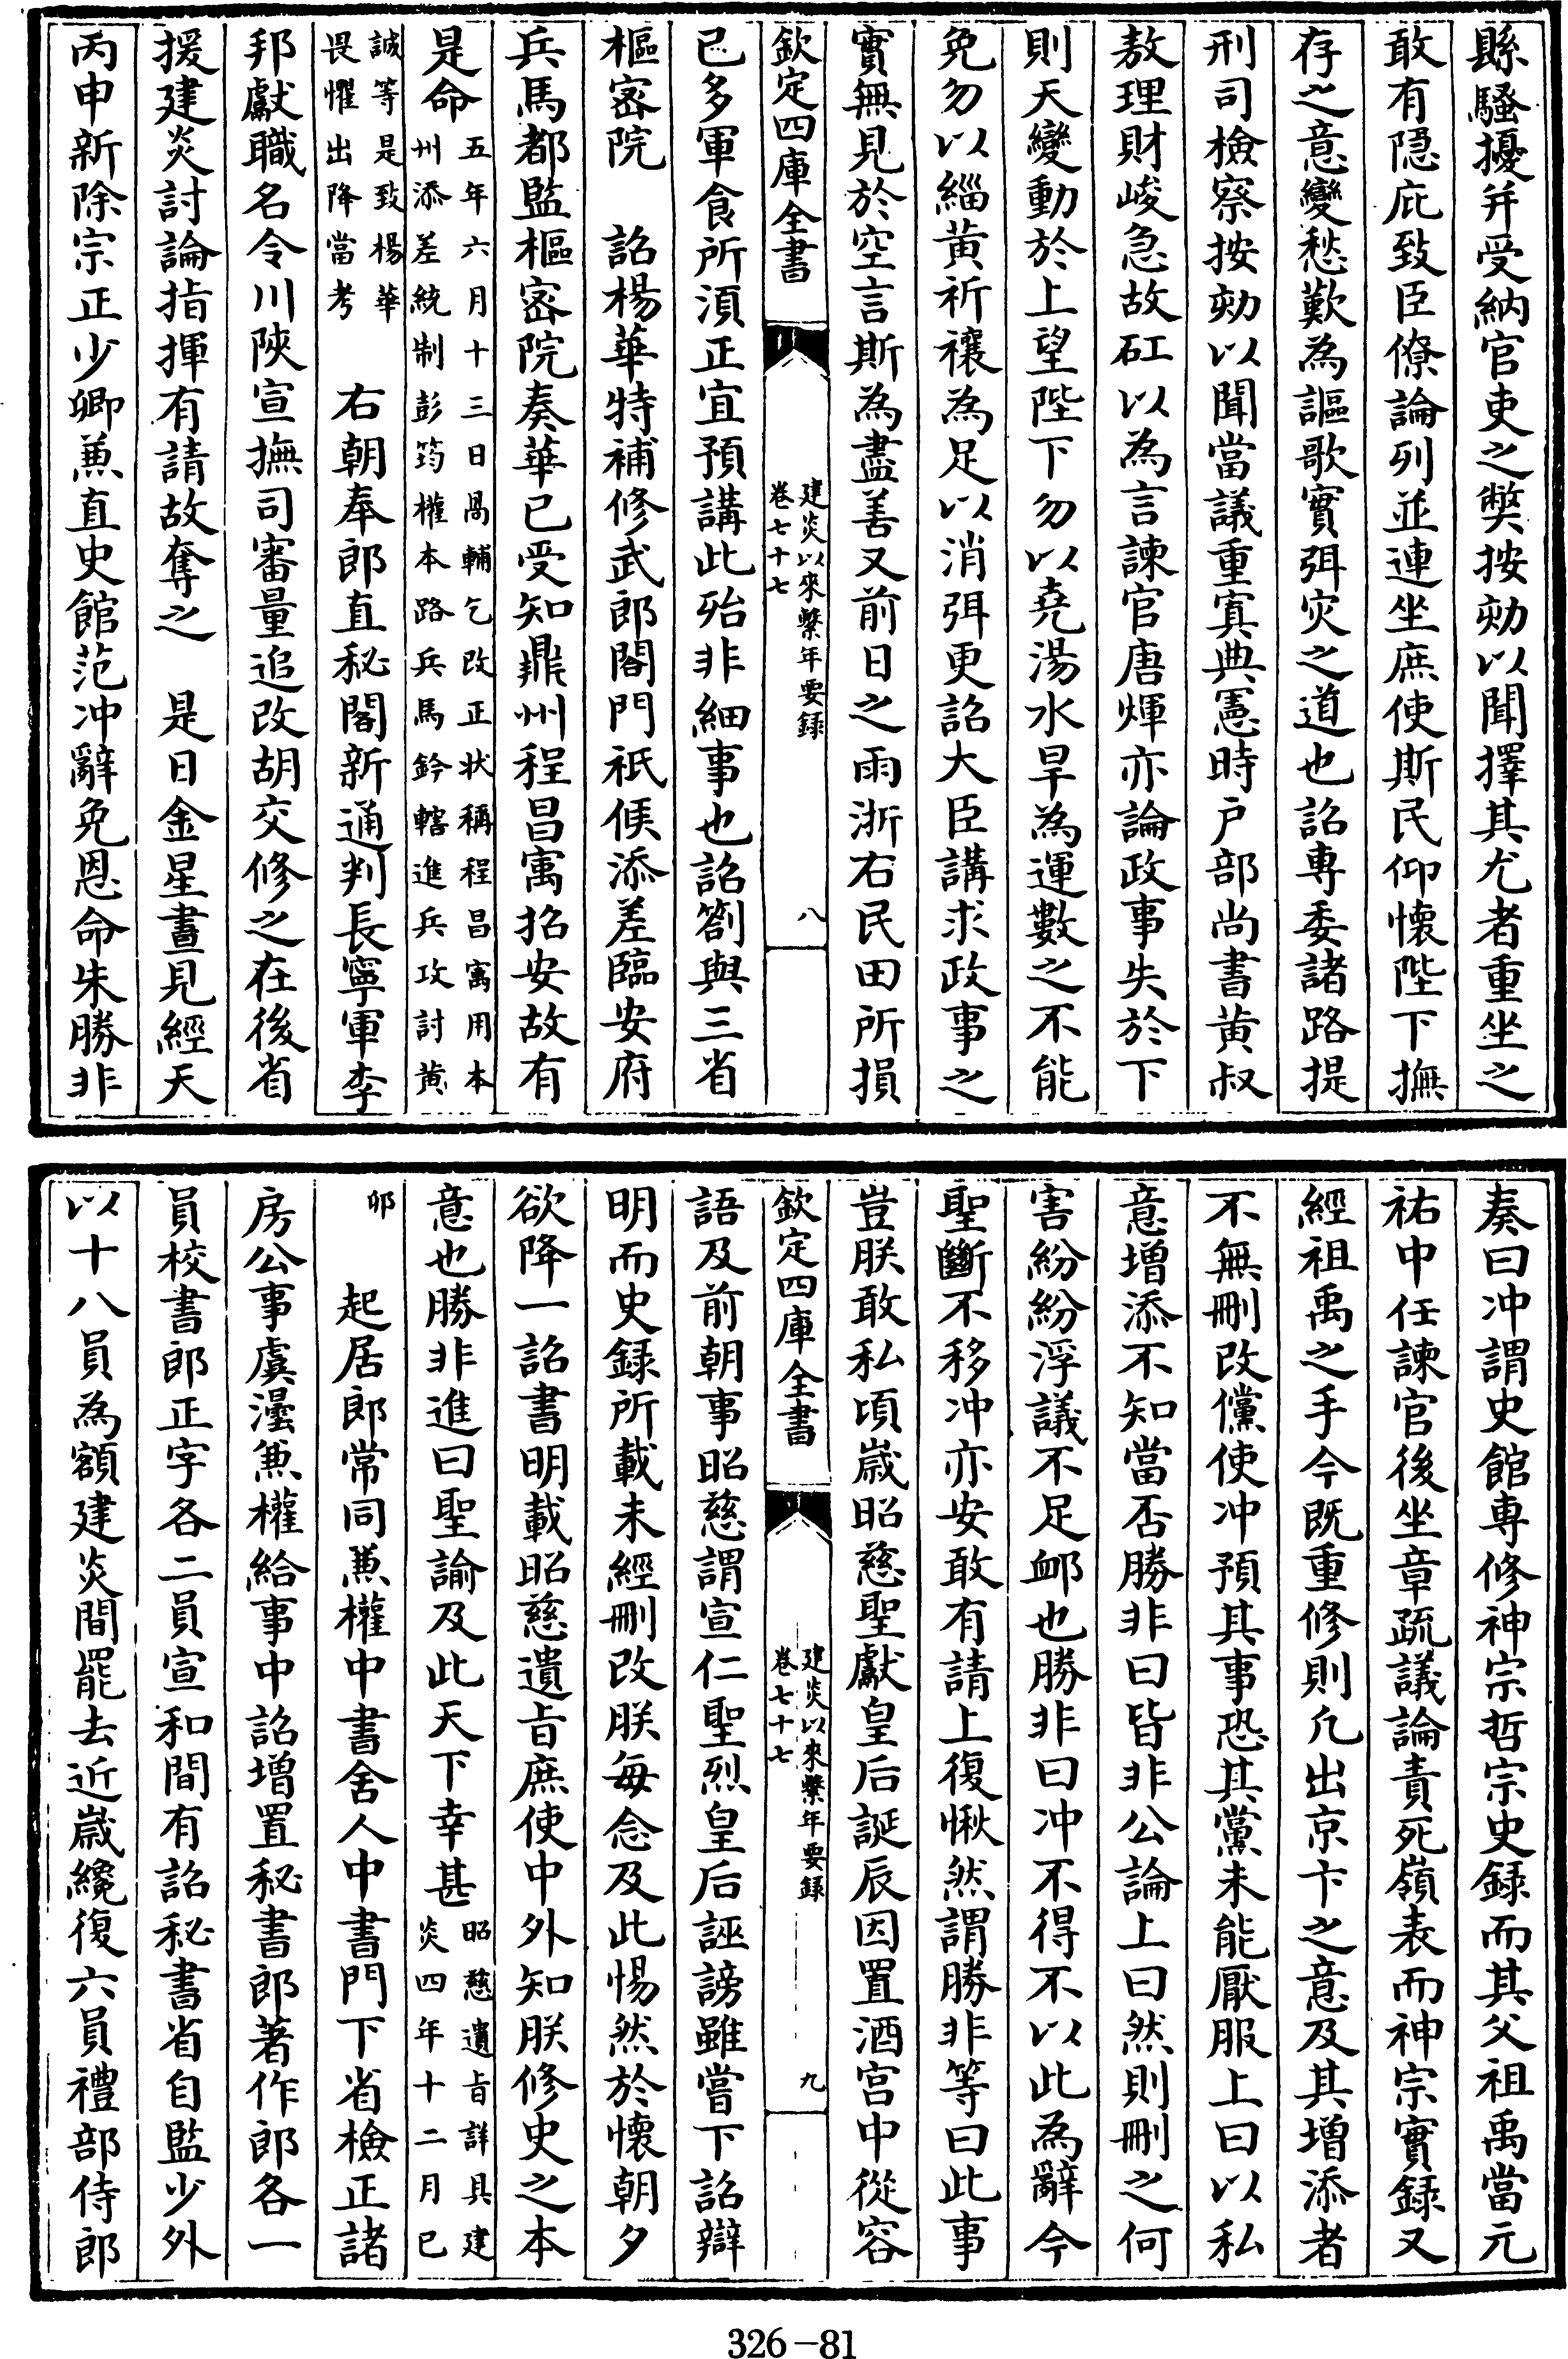 縣騷擾并受納官吏之獘按劾以聞擇其尤者重坐之
敢有隠庇致臣僚論列並連坐庶使斯民仰懷陛下撫
存之意變愁歎為謳歌實弭灾之道也詔専委諸路提
刑司檢察按劾以聞當議重寘典憲時户部尚書黄叔
敖理財峻急故矼以為言諫官唐煇亦論政事失於下
則天變動於上望陛下勿以堯湯水旱為運數之不能
免勿以緇黄祈禳為足以消弭更詔大臣講求政事之
實無見於空言斯為盡善又前日之雨浙右民田所損
欽定四庫全書
建炎以來繫年要録
卷七十七
八
已多軍食所湏正宜預講此殆非細事也詔劄與三省
樞宻院　詔楊華特補修武郎閤門祇候添差臨安府
兵馬都監樞宻院奏華已受知鼎州程昌寓招安故有
是命五年六月十三日髙輔乞改正状稱程昌寓用本
州添差統制彭筠權本路兵馬鈐轄進兵攻討黄
誠等是致楊華
畏懼出降當考　右朝奉郎直秘閣新通判長寧軍李
邦獻職名令川陜宣撫司審量追改胡交修之在後省
援建炎討論指揮有請故奪之　是日金星晝見經天
丙申新除宗正少卿兼直史館范冲辭免恩命朱勝非
奏曰冲謂史館専修神宗哲宗史録而其父祖禹當元
祐中任諫官後坐章疏議論責死嶺表而神宗實録又
經祖禹之手今既重修則凡出京卞之意及其增添者
不無刪改儻使冲預其事恐其黨未能厭服上曰以私
意增添不知當否勝非曰皆非公論上曰然則刪之何
害紛紛浮議不足䘏也勝非曰冲不得不以此為辭今
聖斷不移冲亦安敢有請上復愀然謂勝非等曰此事
豈朕敢私頃嵗昭慈聖獻皇后誕辰因置酒宫中從容
欽定四庫全書
建炎以來繫年要録
卷七十七
九
語及前朝事昭慈謂宣仁聖烈皇后誣謗雖嘗下詔辯
明而史録所載未經刪改朕每念及此惕然於懷朝夕
欲降一詔書明載昭慈遺旨庶使中外知朕修史之本
意也勝非進曰聖諭及此天下幸甚昭慈遺旨詳具建
炎四年十二月已
夘　起居郎常同兼權中書舍人中書門下省檢正諸
房公事虞澐兼權給事中詔增置秘書郎著作郎各一
員校書郎正字各二員宣和間有詔秘書省自監少外
以十八員為額建炎間罷去近嵗纔復六員禮部侍郎
326-81